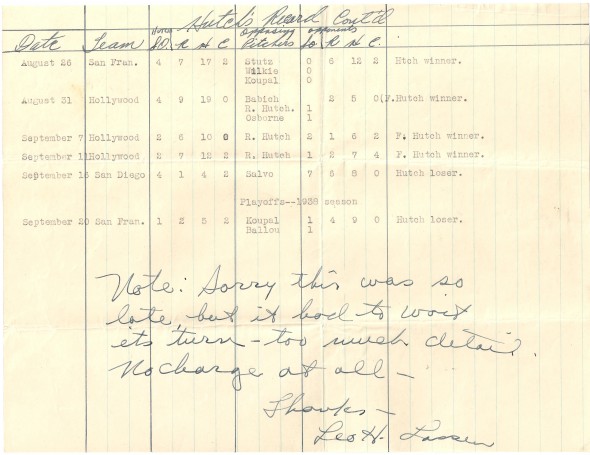 Hutch's Record Cont'd
Homers Opposing opponents
Date Team SO. R H E Pitchers SO R H E.
August 26 San Fran. 4 7 17 2 Stutz 0 6 12 2 Htch winner.
Wilkie 0
Koupal 0
August 31 Hollywood 4 9 19 0 Babich 2 5 0(F.Hutch winner.
R. Hutch. 1
Osborne 1
September 7 Hollywood 2 6 10 0 R. Hutch 2 1 6 2 F. Hutch winner.
September 11 Hollywood 2 7 12 2 R. Hutch 1 2 7 4 F. Hutch winner.
September 16 San Diego 4 1 4 2 Salvo 7 5 8 0 Hutch loser.
Playoffs--1938 season
September 20 San Fran. 1 2 5 2 Koupal 1 4 9 0 Hutch loser.
Ballou 1
Note: Sorry this was so
late, but it had to wait
its turn - too much detail.
No charge at all -
Thanks -
Leo H. Lassen